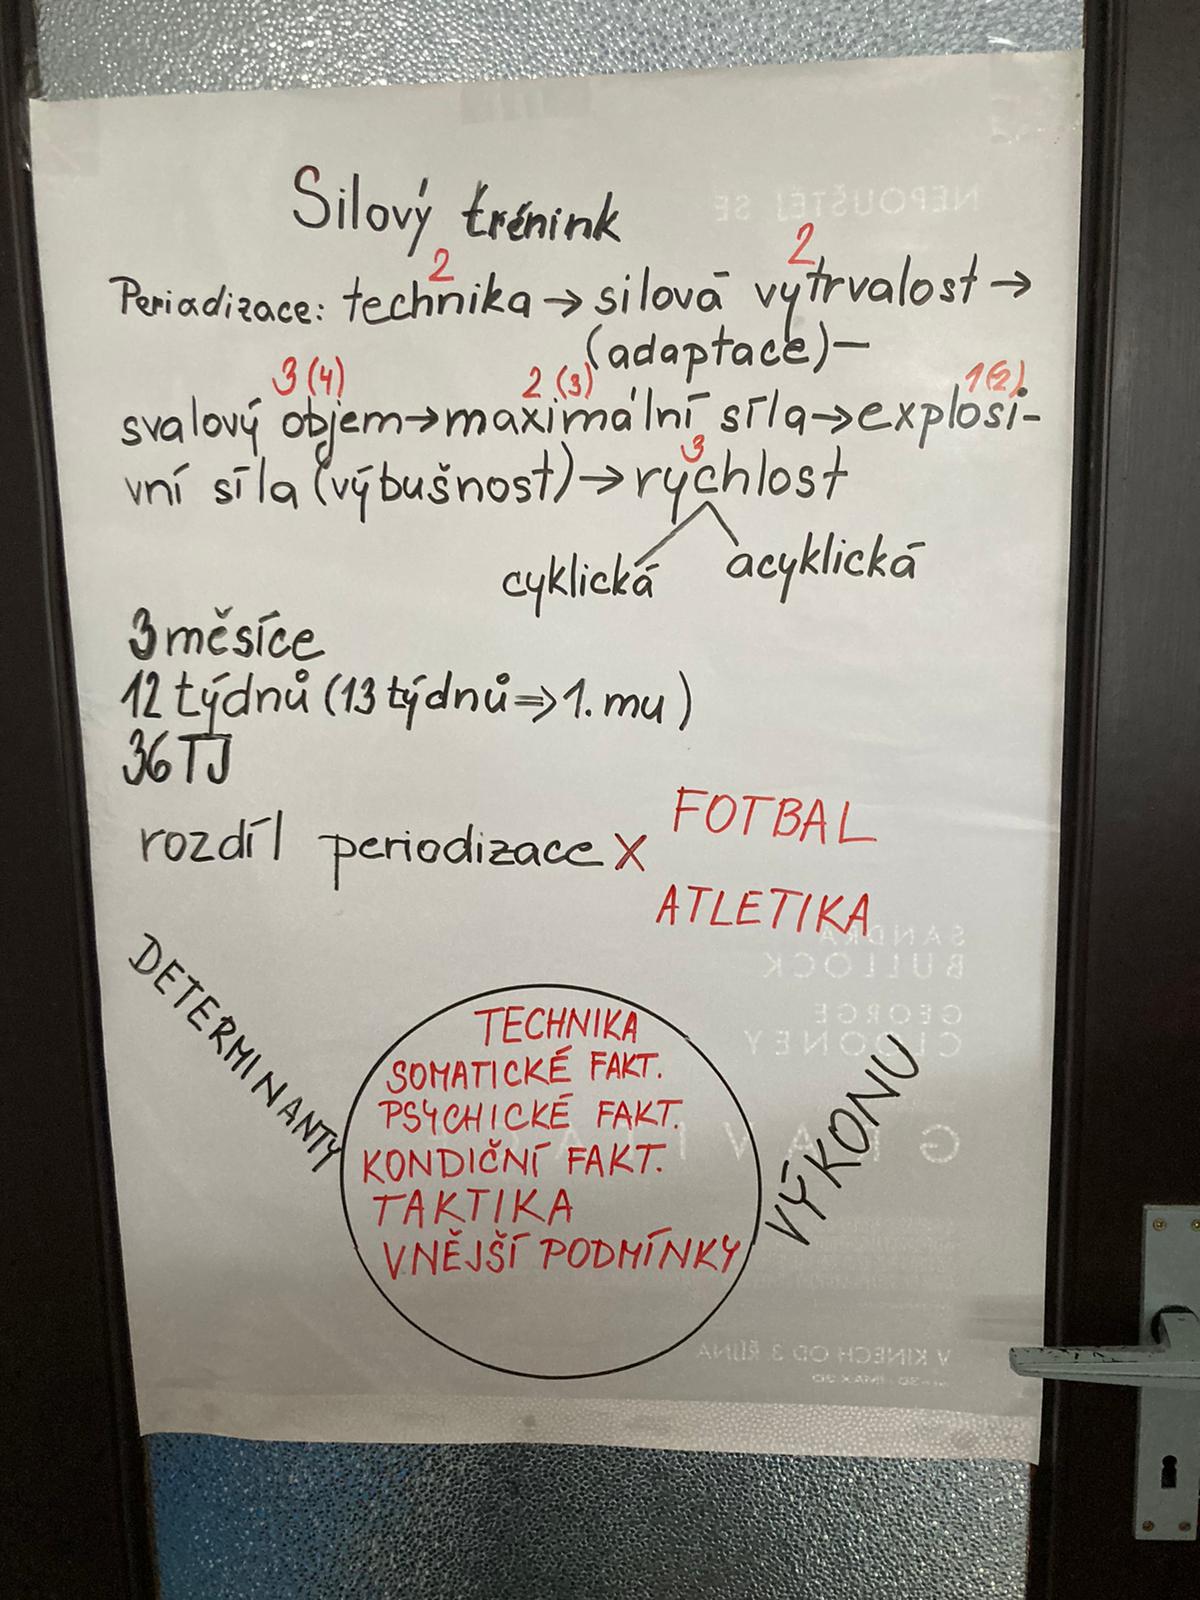 Silový trénink
2 2
Periadizace: technika → silová vytrvalost →
(adaptace) –
3 (4) 2 (3) 1(2)
svalový objem → maximální síla → explosi-
3
vní síla (výbušnost) → rychlost
cyklická acyklická
3 měsíce
12 týdnů (13 týdnů ⇒ 1. mu)
36 TJ
rozdíl periodizace X FOTBAL
ATLETIKA
DETERMINANTY
TECHNIKA
SOMATICKÉ FAKT.
PSYCHICKÉ FAKT.
KONDIČNÍ FAKT.
TAKTIKA
VNĚJŠÍ PODMÍNKY
VÝKONU
NEPOUŠTĚJ SE
SANDRA
BULLOCK
GEORGE
CLOONEY
V KINECH OD 3. ŘÍJNA